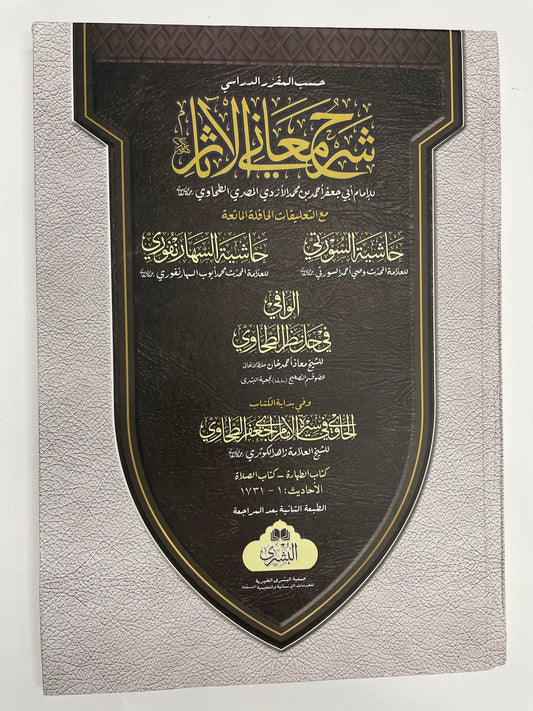 حسب المقرر الدراسي
شرح معاني الآثار
للإمام أبي جعفر أحمد بن محمد الأزدي المصري الطحاوي
مع التعليقات الحافلة الماتعة
حاشية السورتي
حاشية السهارنفوري
للعلامة المحدث وصي أحمد السورتي
للعلامة المحدث محمد أيوب السهارنفوري
الوافي
في حل نظر الطحاوي
للشيخ معاذ أحمد خان
عضو قسم التصحيح (سابقا) بجمعية البشرى
وفي بداية الكتاب
الحاوي في سيرة الإمام أبي جعفر الطحاوي
للشيخ العلامة زاهد الكوثري
كتاب الطهارة – كتاب الصلاة
الأحاديث: ١ – ١٧٣١
الطبعة الثانية بعد المراجعة
البشرى
جمعية البشرى الخيرية
للخدمات الإنسانية والتعليمية